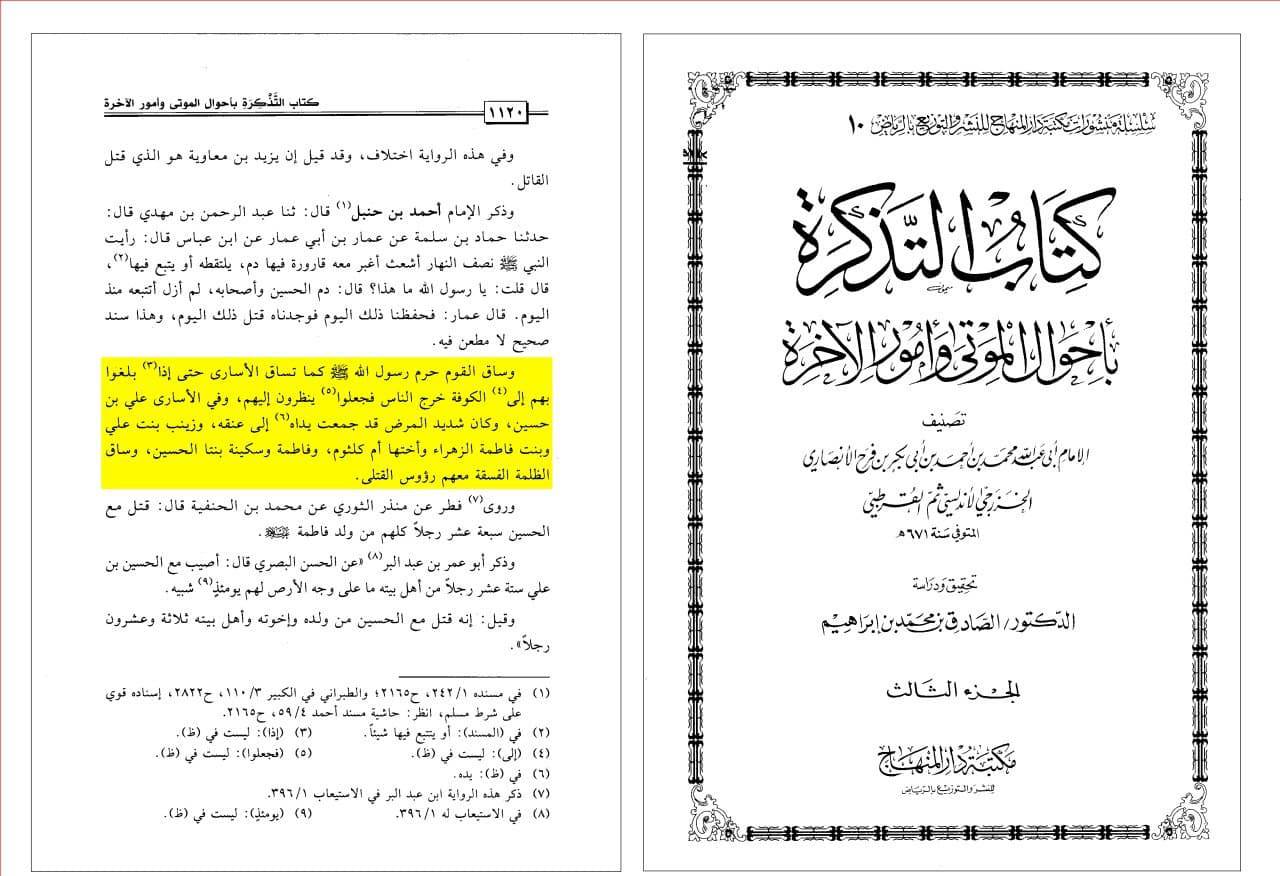 سلسلة منشورات مكتبة دار المنهاج للنشر والتوزيع بالرياض ١٠
كتاب التذكرة
بأحوال الموتى وأمور الآخرة
تصنيف
الإمام أبي عبد الله محمد بن أحمد بن أبي بكر بن فرح الأنصاري
الخزرجي الأندلسي ثم القرطبي
المتوفى سنة ٦٧١ هـ
تحقيق ودراسة
الدكتور/ الصادق بن محمد بن إبراهيم
الجزء الثالث
مكتبة دار المنهاج
للنشر والتوزيع بالرياض
كتاب التَّذْكِرَةِ بأحوال الموتى وأمور الآخرة
١١٢٠
وفي هذه الرواية اختلاف، وقد قيل إن يزيد بن معاوية هو الذي قتل
القاتل.
وذكر الإمام أحمد بن حنبل(١) قال: ثنا عبد الرحمن بن مهدي قال:
حدثنا حماد بن سلمة عن عمار بن أبي عمار عن ابن عباس قال: رأيت
النبي ﷺ نصف النهار أشعث أغبر معه قارورة فيها دم، يلتقطه أو يتبع فيها(٢)،
قال قلت: يا رسول الله ما هذا؟ قال: دم الحسين وأصحابه، لم أزل أتتبعه منذ
اليوم. قال عمار: فحفظنا ذلك اليوم فوجدناه قتل ذلك اليوم، وهذا سند
صحيح لا مطعن فيه.
وساق القوم حرم رسول الله ﷺ كما تساق الأسارى حتى إذا(٣) بلغوا
بهم إلى(٤) الكوفة خرج الناس فجعلوا(٥) ينظرون إليهم، وفي الأسارى علي بن
حسين، وكان شديد المرض قد جمعت يداه(٦) إلى عنقه، وزينب بنت علي
وبنت فاطمة الزهراء وأختها أم كلثوم، وفاطمة وسكينة بنتا الحسين، وساق
الظلمة الفسقة معهم رؤوس القتلى.
وروى(٧) فطر عن منذر الثوري عن محمد بن الحنفية قال: قتل مع
الحسين سبعة عشر رجلاً كلهم من ولد فاطمة .
وذكر أبو عمر بن عبد البر(٨) «عن الحسن البصري قال: أصيب مع الحسين بن
علي ستة عشر رجلاً من أهل بيته ما على وجه الأرص لهم يومئذٍ(٩) شبيه.
وقيل: إنه قتل مع الحسين من ولده وإخوته وأهل بيته ثلاثة وعشرون
رجلاً».
(١) في مسنده ٢٤٢/١، ح٢١٦٥؛ والطبراني في الكبير ١١٠/٣، ح٢٨٢٢، إسناده قوي
على شرط مسلم، انظر: حاشية مسند أحمد ٥٩/٤، ح٢١٦٥.
(٢) في (المسند): أو يتتبع فيها شيئاً. (٣) (إذا): ليست في (ظ).
(٤) (إلى): ليست في (ظ). (٥) (فجعلوا): ليست في (ظ).
(٦) في (ظ): يده.
(٧) ذكر هذه الرواية ابن عبد البر في الاستيعاب ٣٩٦/١.
(٨) في الاستيعاب له ٣٩٦/١. (٩) (يومئذٍ): ليست في (ظ).